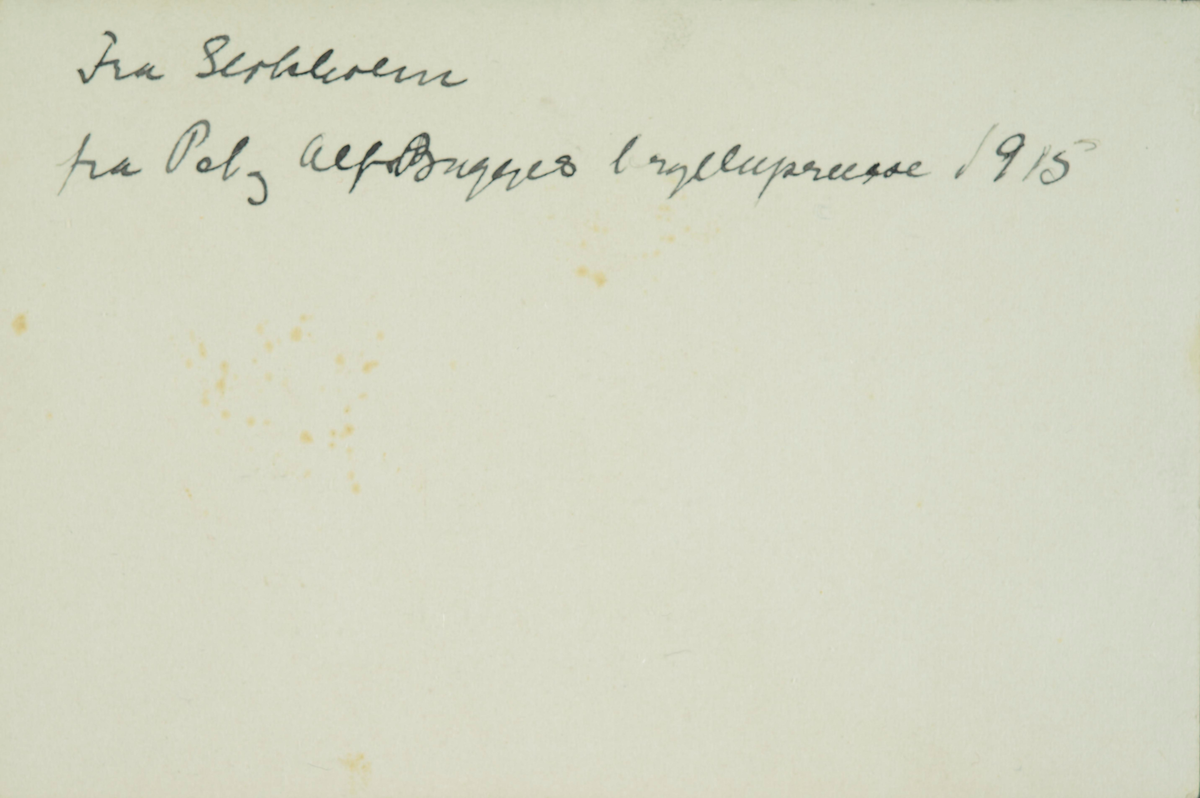 Fra Stokholm
fra Pel og Alf Bugges bryllupsreise 1915